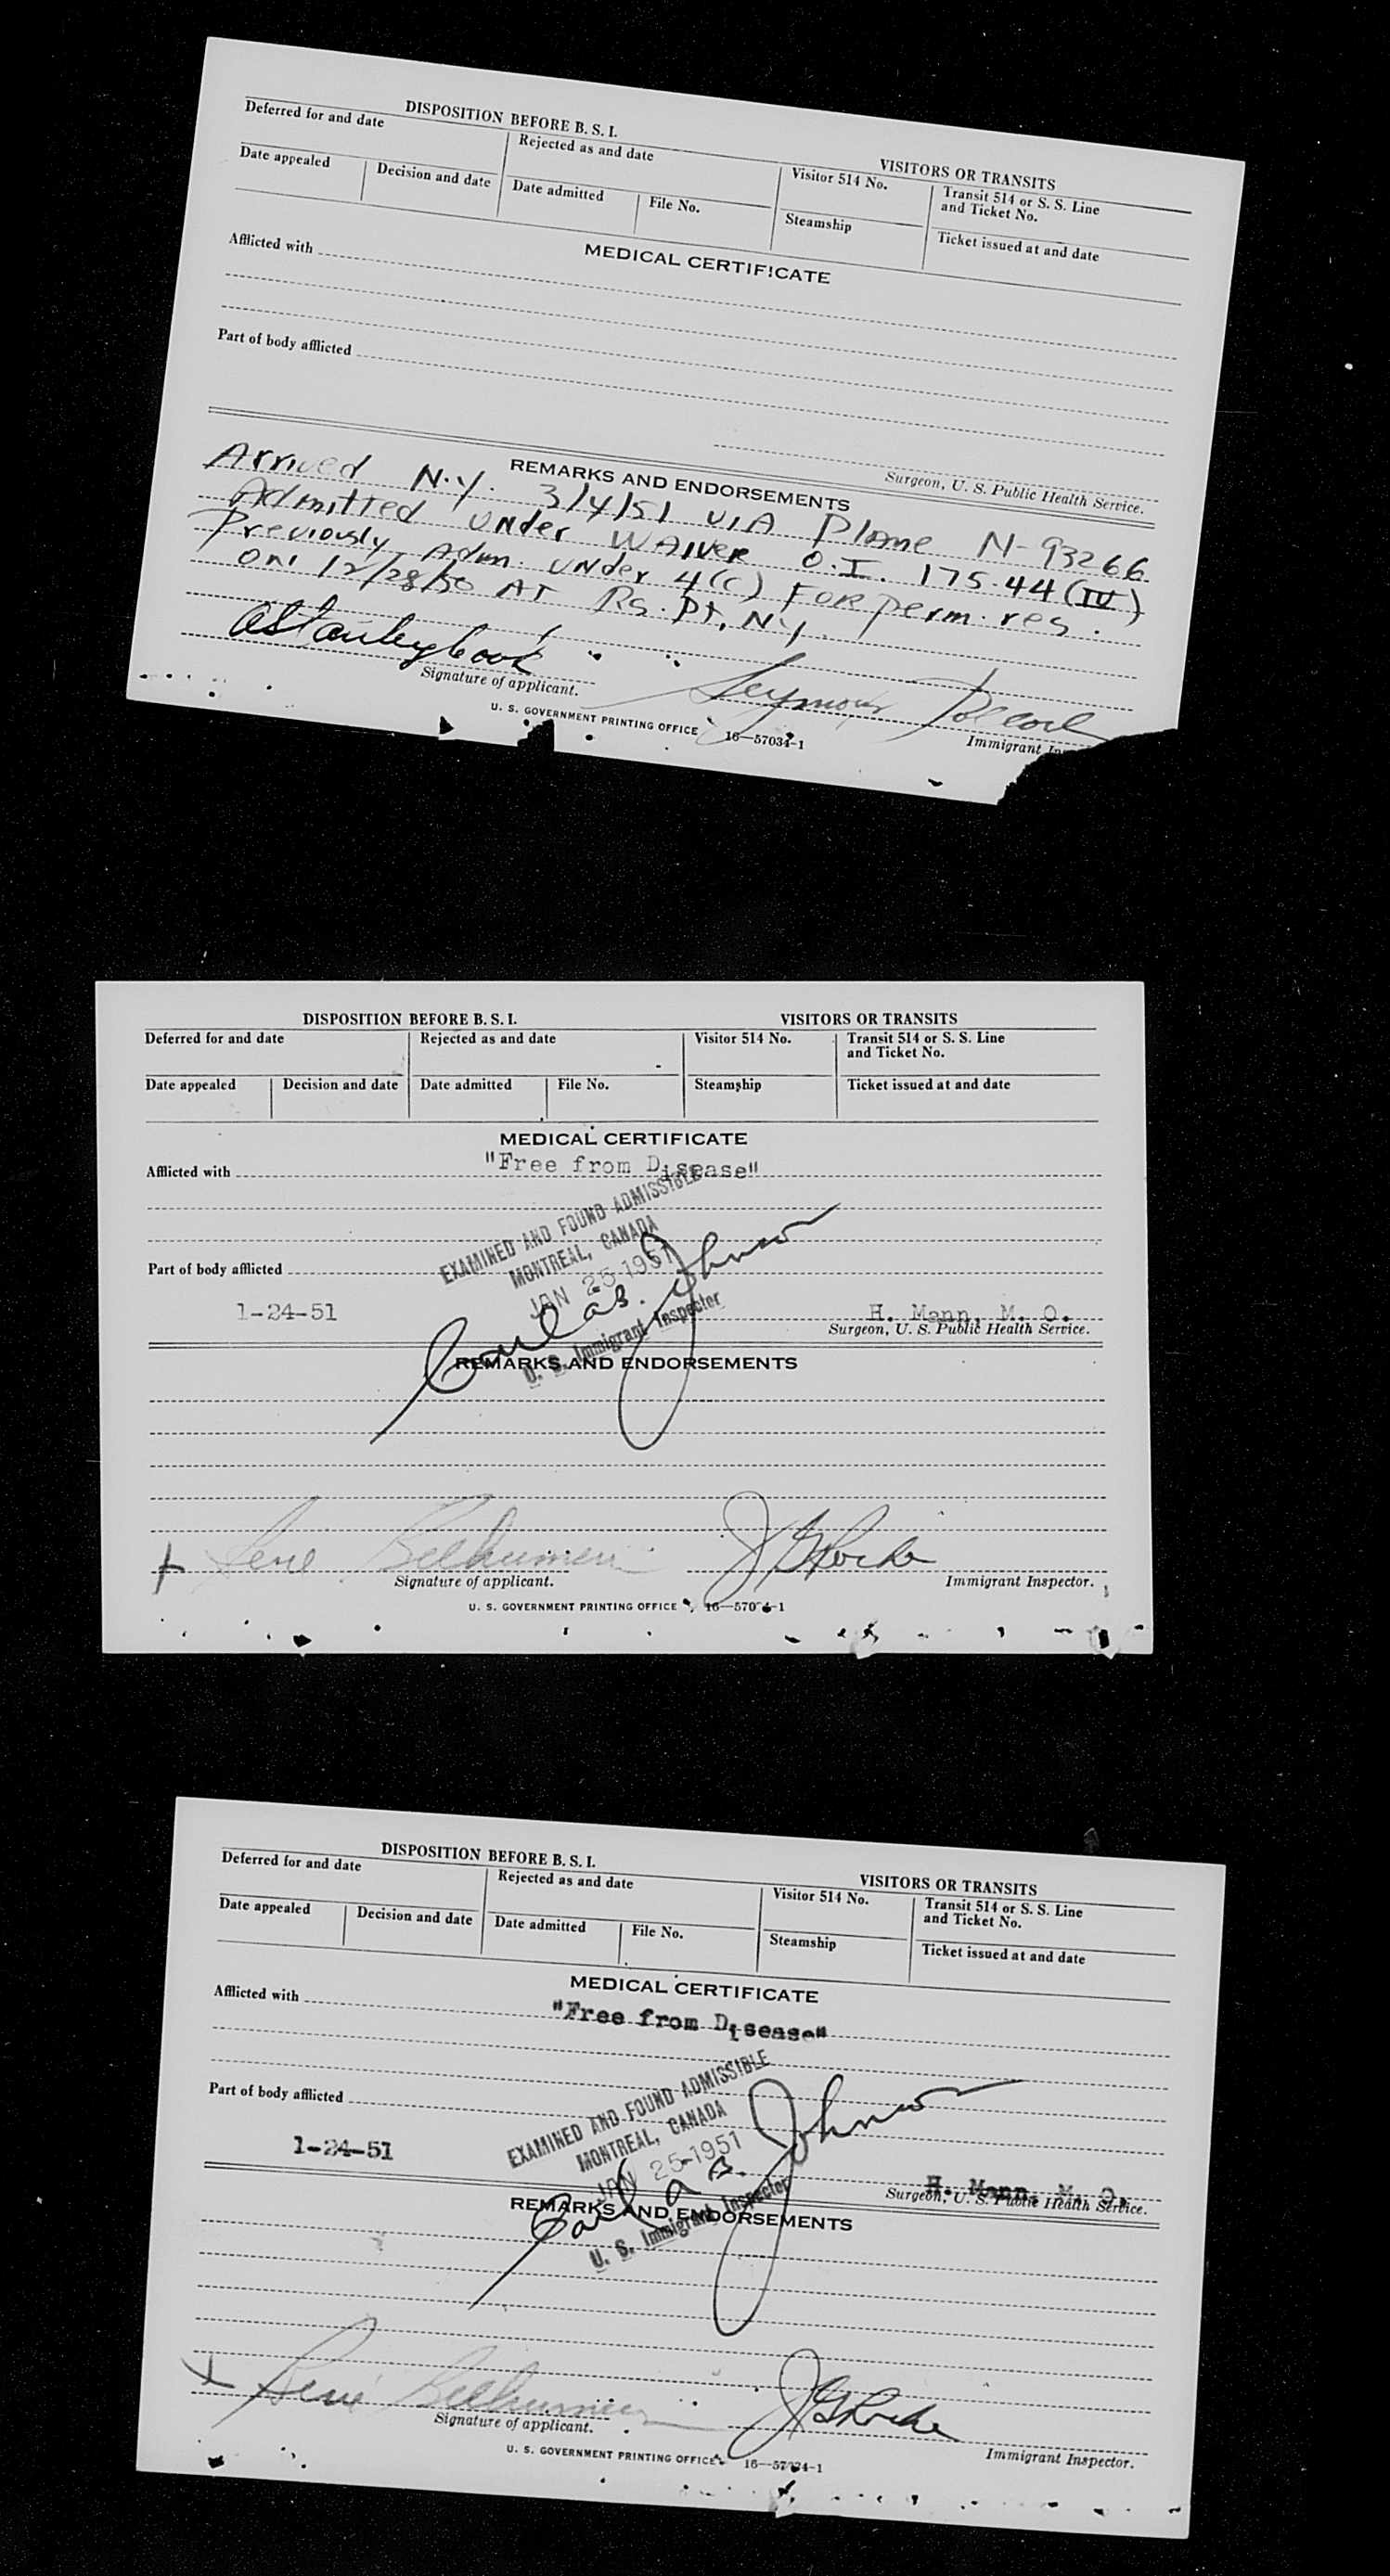 DISPOSITION BEFORE B. S. I.
VISITORS OR TRANSITS
Deferred for and date
Rejected as and date
Visitor 514 No.
Transit 514 or S. S. Line
and Ticket No.
Date appealed
Decision and date
Date admitted
File No.
Steamship
Ticket issued at and date
MEDICAL CERTIFICATE
Afflicted with
Part of body afflicted
Surgeon, U. S. Public Health Service.
REMARKS AND ENDORSEMENTS
Arrived N.Y. 3/4/51 VIA Plane N-93266
Admitted under WAIVER O.I. 175.44 (IV)
Previously Adm. under 4(c) FOR perm. res.
on 12/28/50 AT Rs. Pt, N.Y.
Seymour
Signature of applicant.
Immigrant
U. S. GOVERNMENT PRINTING OFFICE 16—57034-1
DISPOSITION BEFORE B. S. I.
VISITORS OR TRANSITS
Deferred for and date
Rejected as and date
Visitor 514 No.
Transit 514 or S. S. Line
and Ticket No.
Date appealed
Decision and date
Date admitted
File No.
Steamship
Ticket issued at and date
MEDICAL CERTIFICATE
Afflicted with "Free from Disease"
EXAMINED AND FOUND ADMISSIBLE
MONTREAL, CANADA
Part of body afflicted
JAN 25 1951
Johnson
1-24-51
H. Mann, M. O.
U. S. Immigrant Inspector
Surgeon, U. S. Public Health Service.
REMARKS AND ENDORSEMENTS
Signature of applicant.
Immigrant Inspector.
U. S. GOVERNMENT PRINTING OFFICE 16—57034-1
DISPOSITION BEFORE B. S. I.
VISITORS OR TRANSITS
Deferred for and date
Rejected as and date
Visitor 514 No.
Transit 514 or S. S. Line
and Ticket No.
Date appealed
Decision and date
Date admitted
File No.
Steamship
Ticket issued at and date
MEDICAL CERTIFICATE
Afflicted with "Free from Disease"
EXAMINED AND FOUND ADMISSIBLE
MONTREAL, CANADA
Part of body afflicted
JAN 25 1951
Johnson
1-24-51
H. Mann, M. O.
U. S. Immigrant Inspector
Surgeon, U. S. Public Health Service.
REMARKS AND ENDORSEMENTS
Signature of applicant.
Immigrant Inspector.
U. S. GOVERNMENT PRINTING OFFICE 16—57034-1